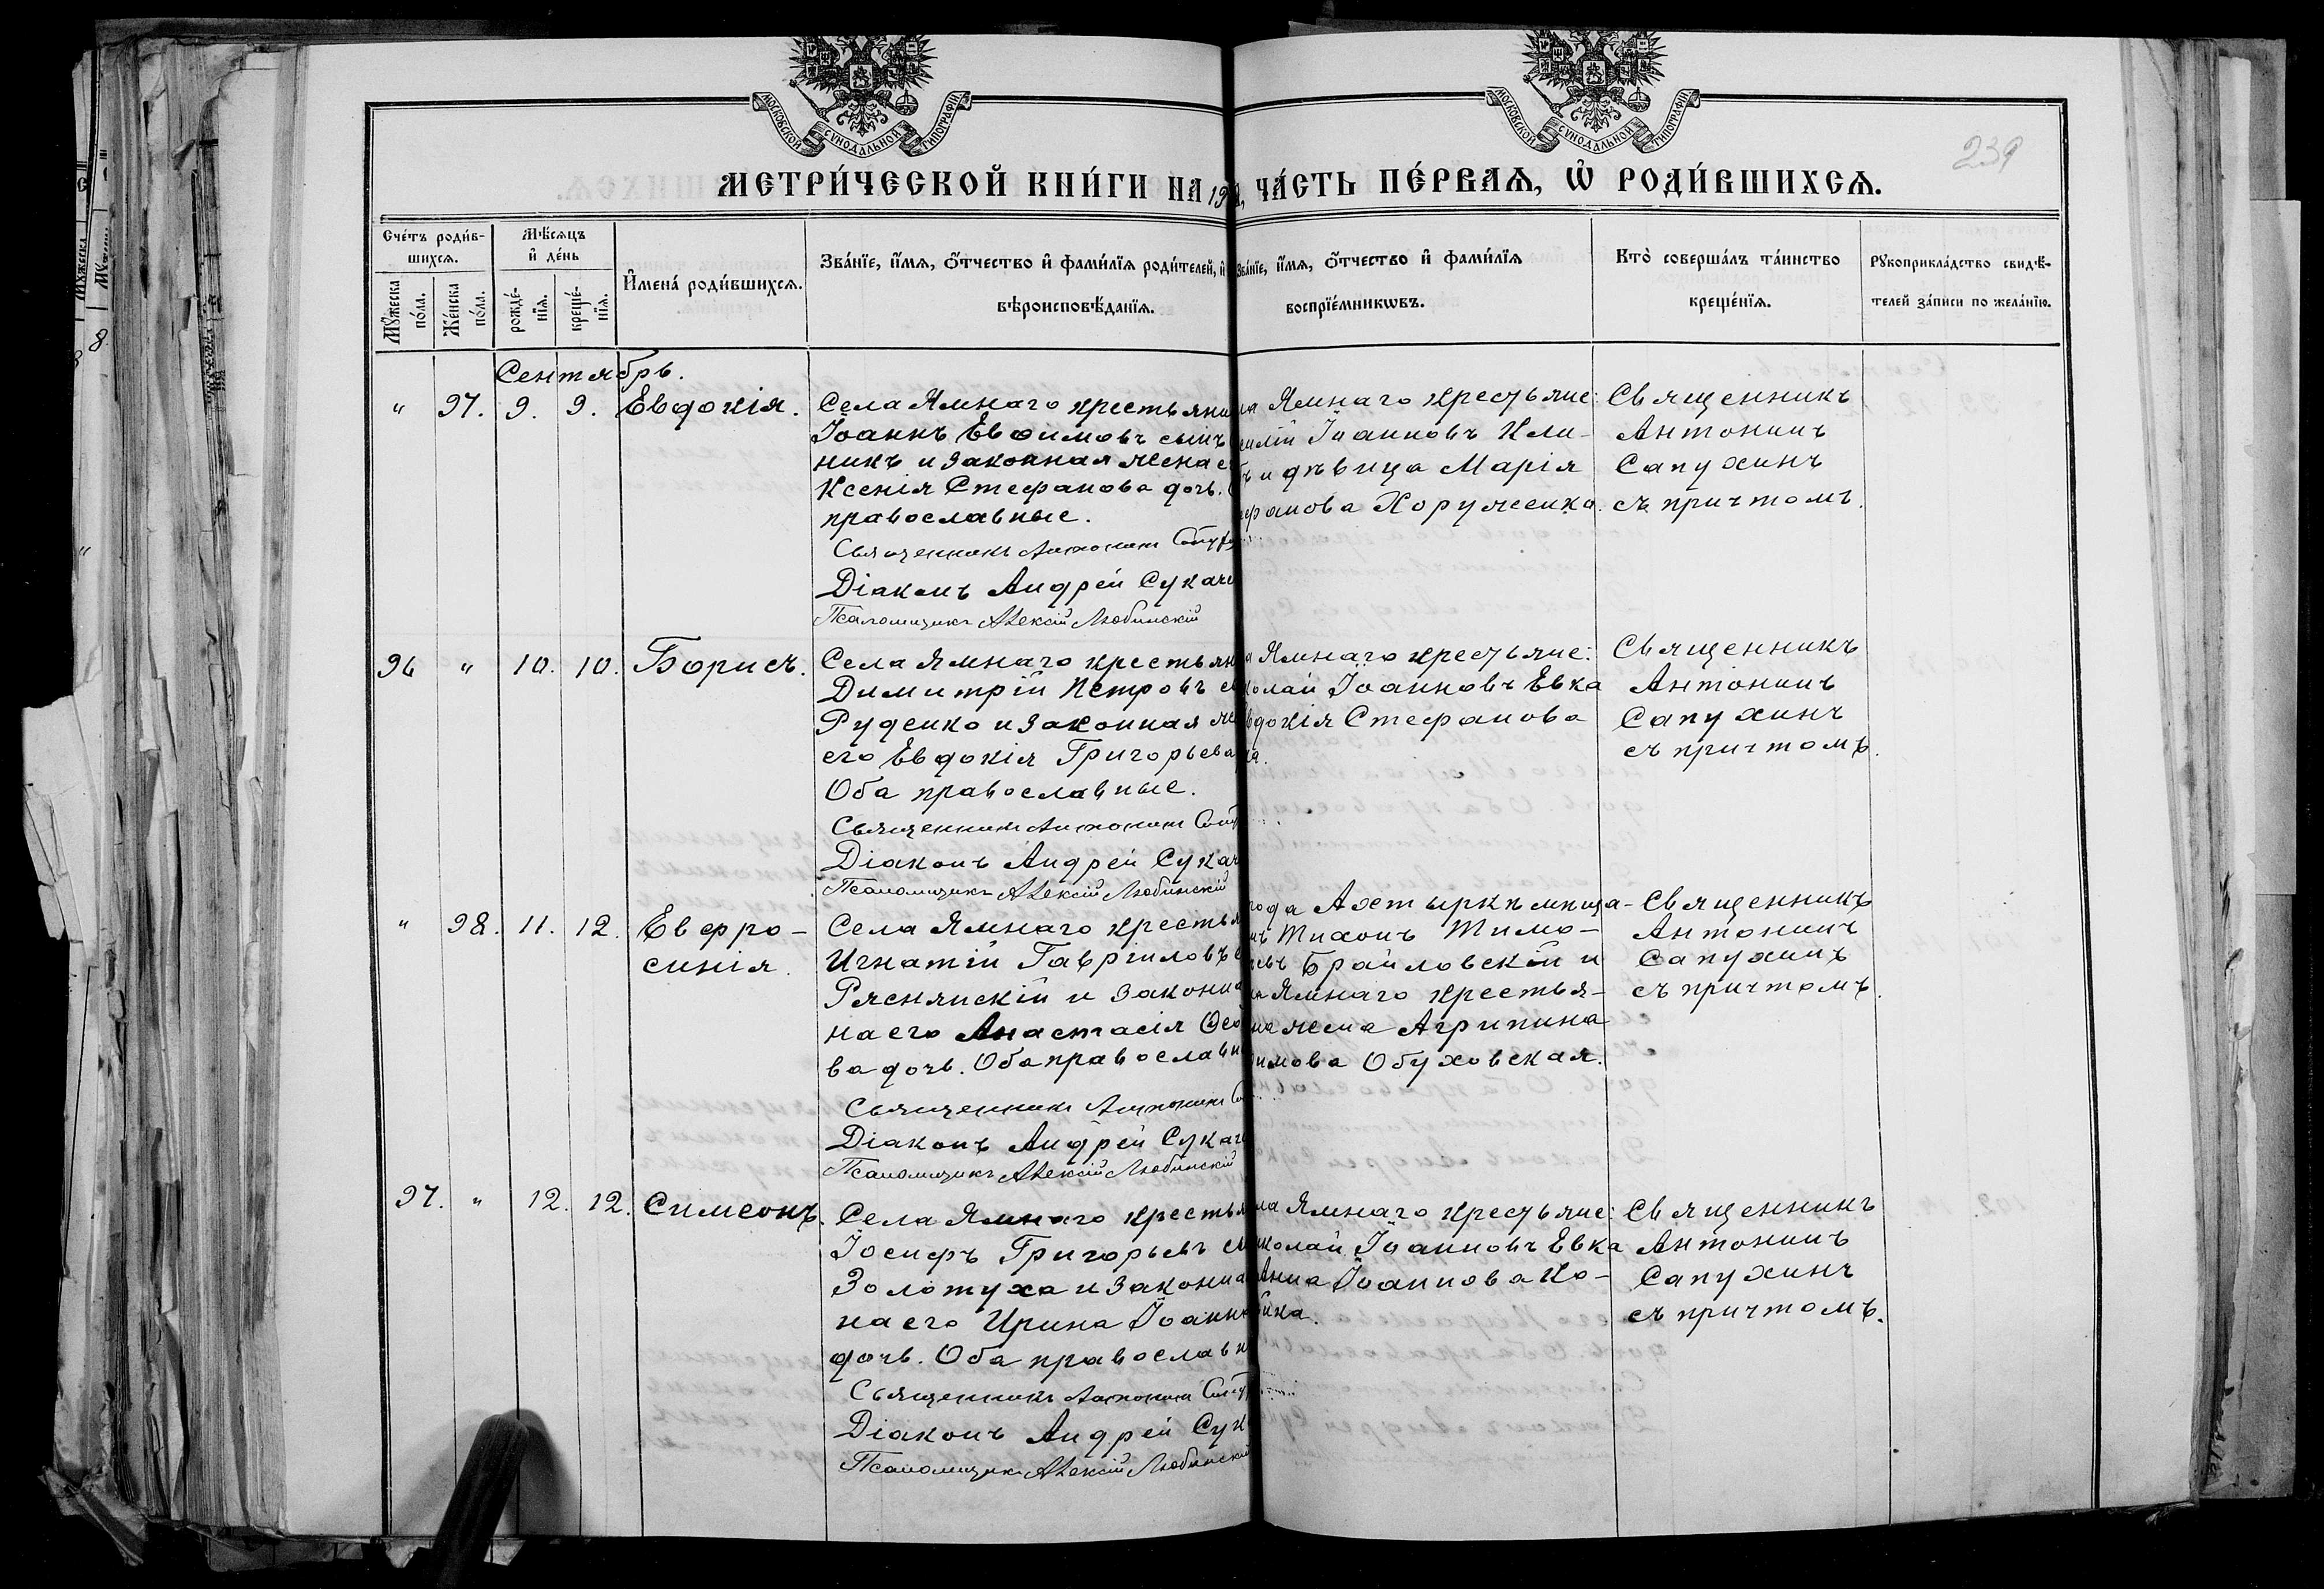 МОСКОВСКОЙ СѴНОДАЛЬНОЙ ТИПОГРАФІИ
МОСКОВСКОЙ СѴНОДАЛЬНОЙ ТИПОГРАФІИ
239
МЕТРИ́ЧЕСКОЙ КНИ́ГИ НА 19
ЧА́СТЬ ПЕ́РВАѦ, Ѡ҆ РОДИ́ВШИХСѦ.
Сче́тъ роди́в-
шихсѧ.
Мѣ́сѧцъ
и҆ де́нь
Мꙋ́жеска
по́ла.
Же́нска
по́ла.
рожде́-
нїѧ.
креще́-
нїѧ.
И҆мена̀ роди́вшихсѧ.
Зва́нїе, и҆́мѧ, ѻ҆́тчество и҆ фами́лїѧ роди́телей, и҆
вѣроисповѣ́данїѧ.
Зва́нїе, и҆́мѧ, ѻ҆́тчество и҆ фами́лїѧ
воспрїе́мникѡвъ.
Кто̀ соверша́лъ та́инство
креще́нїѧ.
Рꙋкоприкла́дство свидѣ́-
телей за́писи по жела́нїю.
Сентябрь.
" 97. 9. 9. Евдокія.
Села Ямнаго крестьяни
Іоаннъ Евѳимовъ сынъ
никъ и законная жена е
Ксенія Стефанова дочь.
православные.
Священникъ Антонинъ
Діаконъ Андрей Сукаче
Псаломщикъ Алексій Любинскій
на Ямнаго крестьяне:
силій Іоанновъ Кли-
ъ и дѣвица Марія
ефанова Хоруженко.
Священникъ
Антонинъ
Сапухинъ
съ причтомъ.
96 " 10. 10. Борисъ.
Села Ямнаго крестьян
Димитрій Петровъ с
Руденко и законная же
его Евдокія Григорьева
Оба православные.
Священникъ Антонинъ
Діаконъ Андрей Сукач
Псаломщикъ Алексій Любинскій
а Ямнаго крестьяне:
колай Іоанновъ Евка
вдокія Стефанова
на.
Священникъ
Антонинъ
Сапухинъ
съ причтомъ.
" 98. 11. 12. Евфро-
синія.
Села Ямнаго крестья
Игнатій Гавріиловъ с
Ряснянскій и законна
на его Анастасія Ѳео
ва дочь. Оба православн
Священникъ Антонинъ
Діаконъ Андрей Сукаче
Псаломщикъ Алексій Любинскій
рода Ахтырки мѣща-
нъ Тихонъ Тимо-
евъ Браиловскій и
ла Ямнаго крестья-
на жена Агрипина
имова Обуховская.
Священникъ
Антонинъ
Сапухинъ
съ причтомъ.
97. " 12. 12. Симеонъ.
Села Ямнаго крестья
Іосифъ Григорьевъ с
Золотуха и законна
на его Ирина Іоанно
дочь. Оба православн
Священникъ Антонинъ
Діаконъ Андрей Сук
Псаломщикъ Алексій Любинскій
ла Ямнаго крестьяне:
иколай Іоанновъ Евка
Анна Іоаннова Ко-
йка.
Священникъ
Антонинъ
Сапухинъ
съ причтомъ.